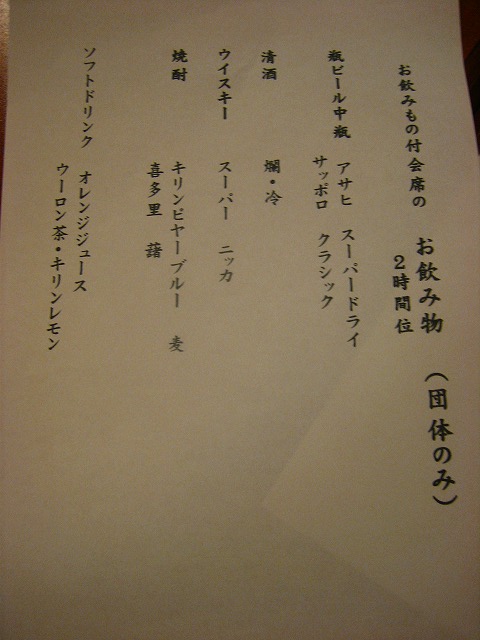 お飲みもの付会席の　お飲み物　（団体のみ）
２時間位
瓶ビール中瓶　アサヒ　スーパードライ
サッポロ　クラシック
清酒　燗・冷
ウイスキー　スーパー　ニッカ
焼酎　キリンピヤーブルー　麦
喜多里　藷
ソフトドリンク　オレンジジュース
ウーロン茶・キリンレモン